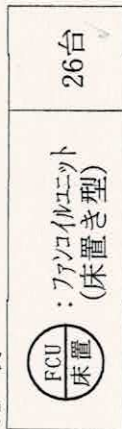 FCU
床置
：ファンコイルユニット
(床置き型)
26台